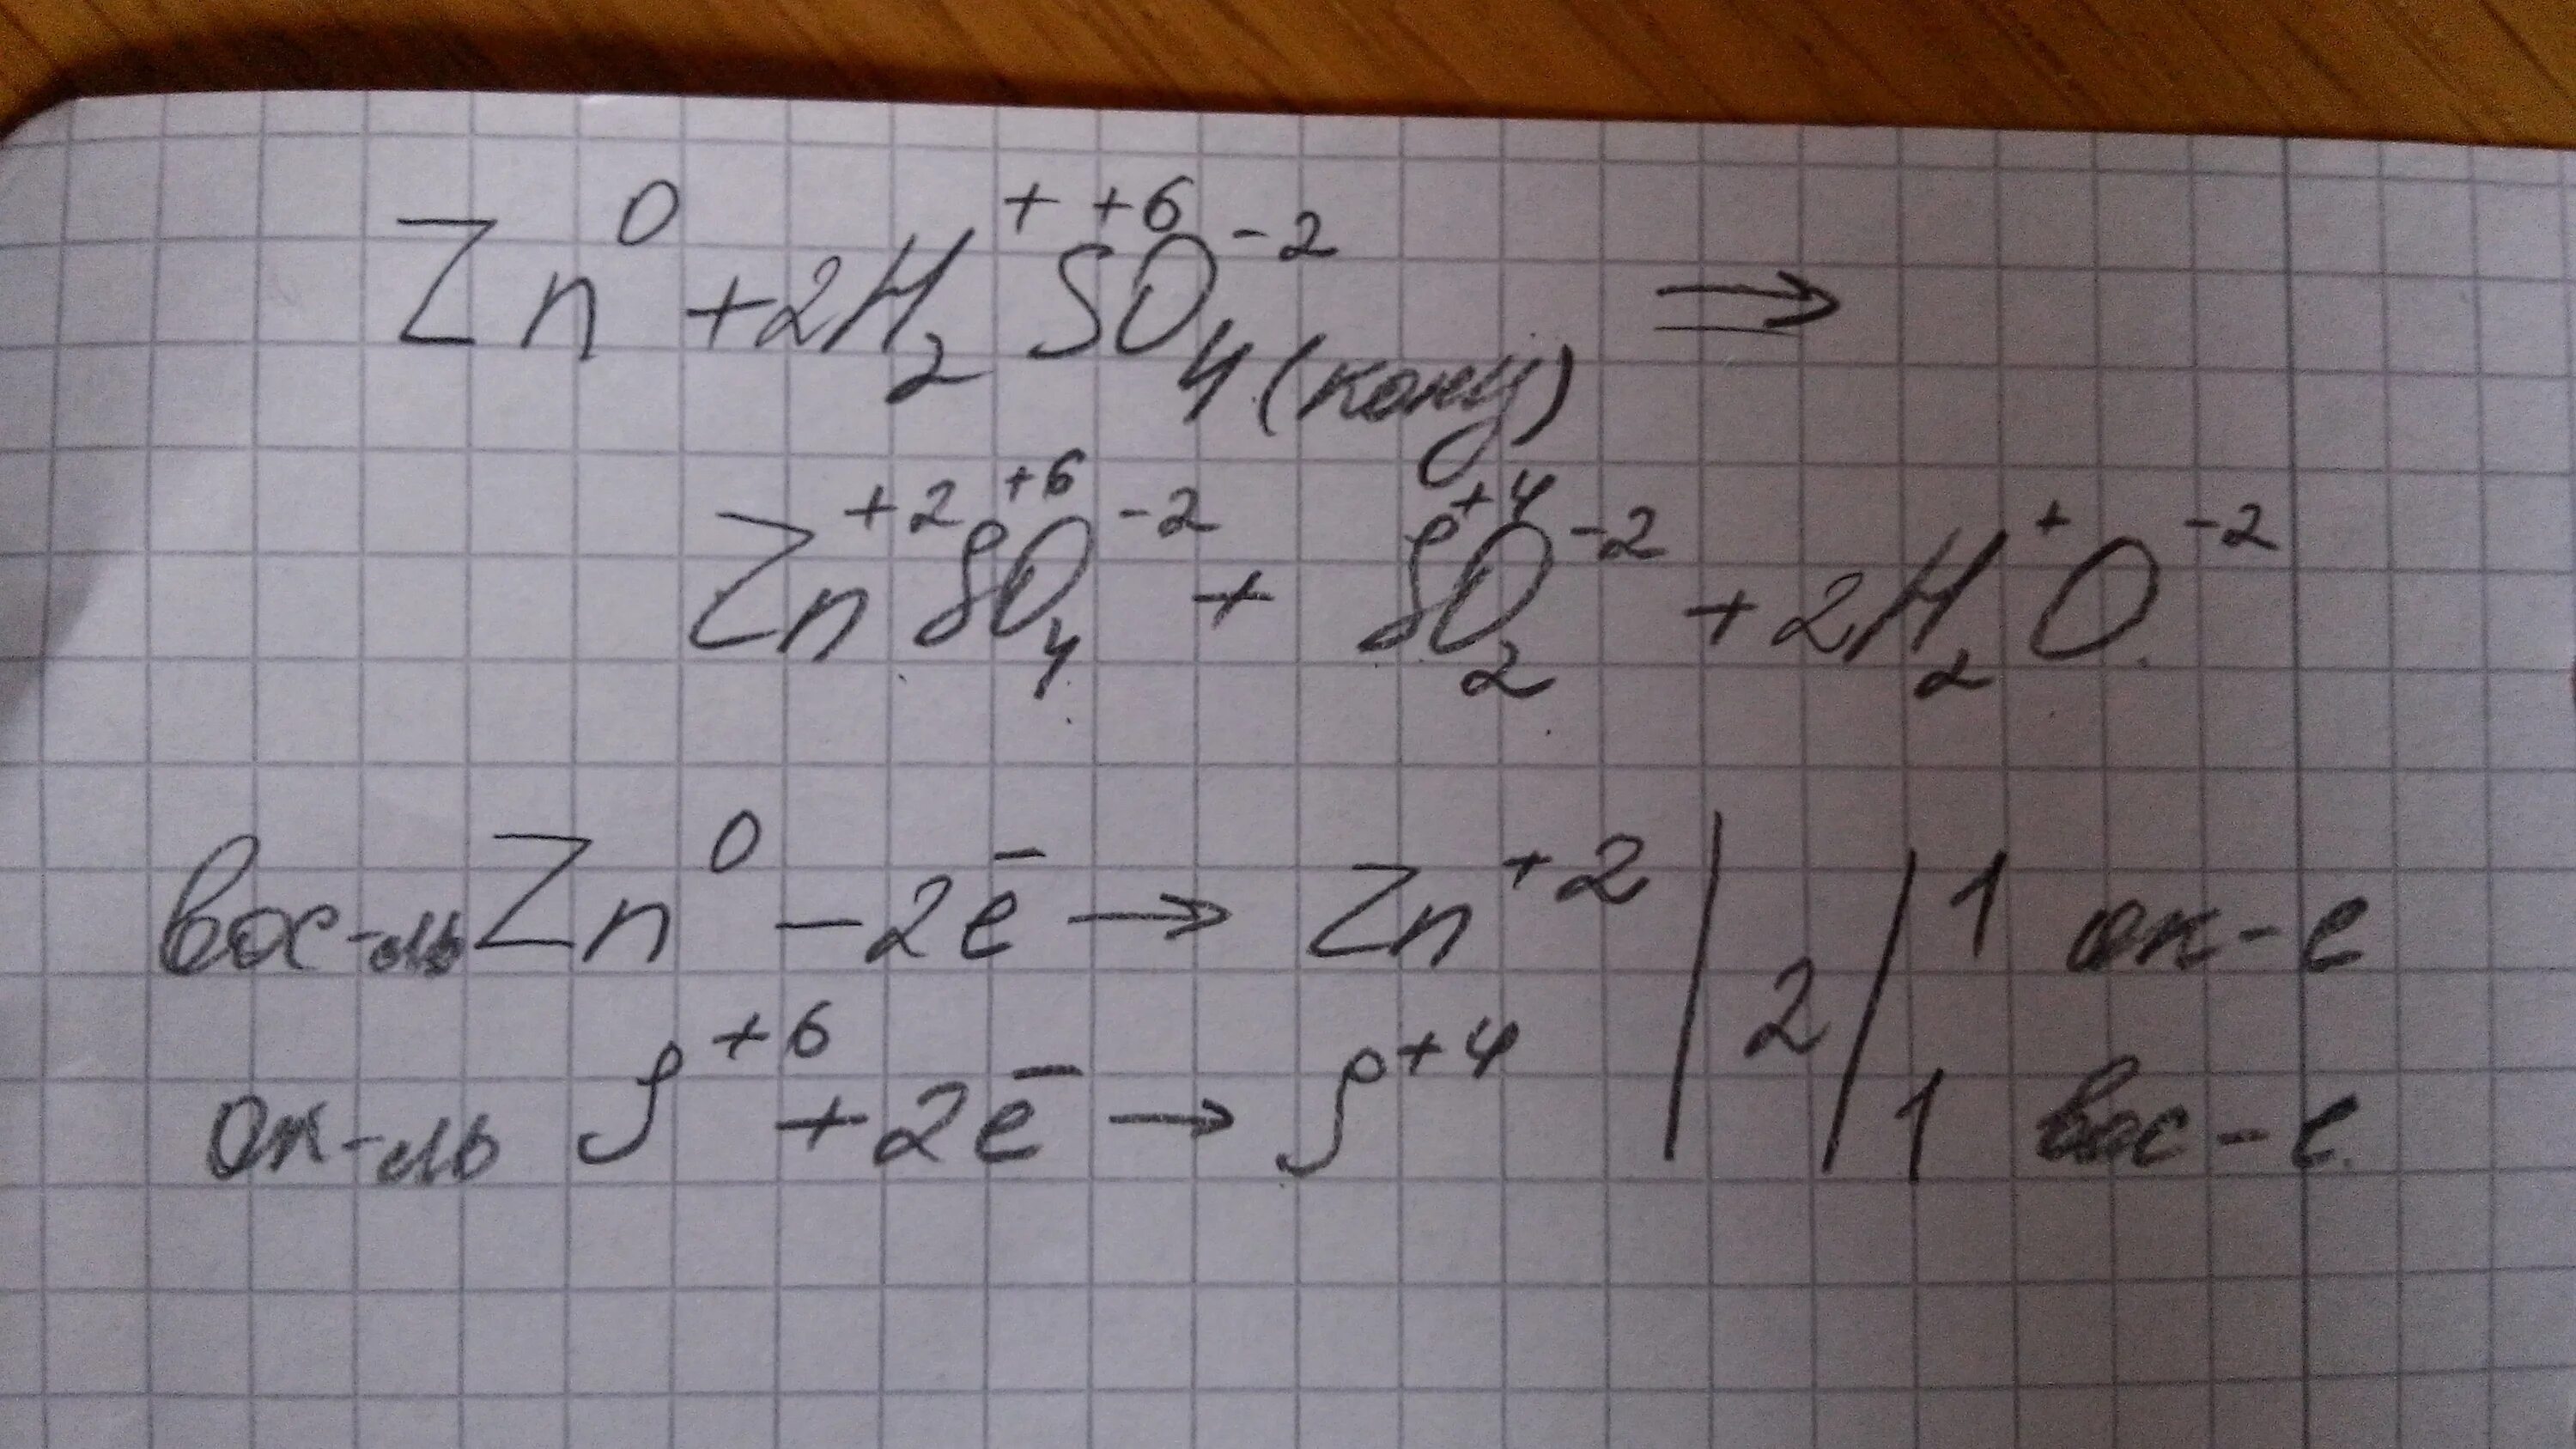 Zn⁰ + 2H₂⁺S⁺⁶O₄⁻² (конц) ⇒
Zn⁺²S⁺⁶O₄⁻² + S⁺⁴O₂⁻² + 2H₂⁺O⁻²
вос-ль Zn⁰ – 2e̅ → Zn⁺² | 2 | 1 ок-е
ок-ль S⁺⁶ + 2e̅ → S⁺⁴ | | 1 вос-е.